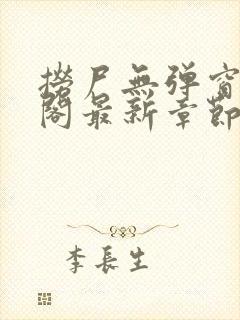 撈尸無弹窗
閣最新章節
李長生